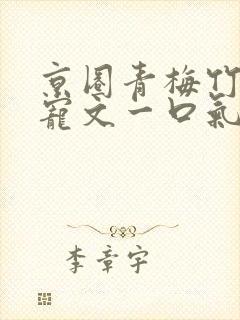 京圈青梅竹
宠文一口氣
李章宇